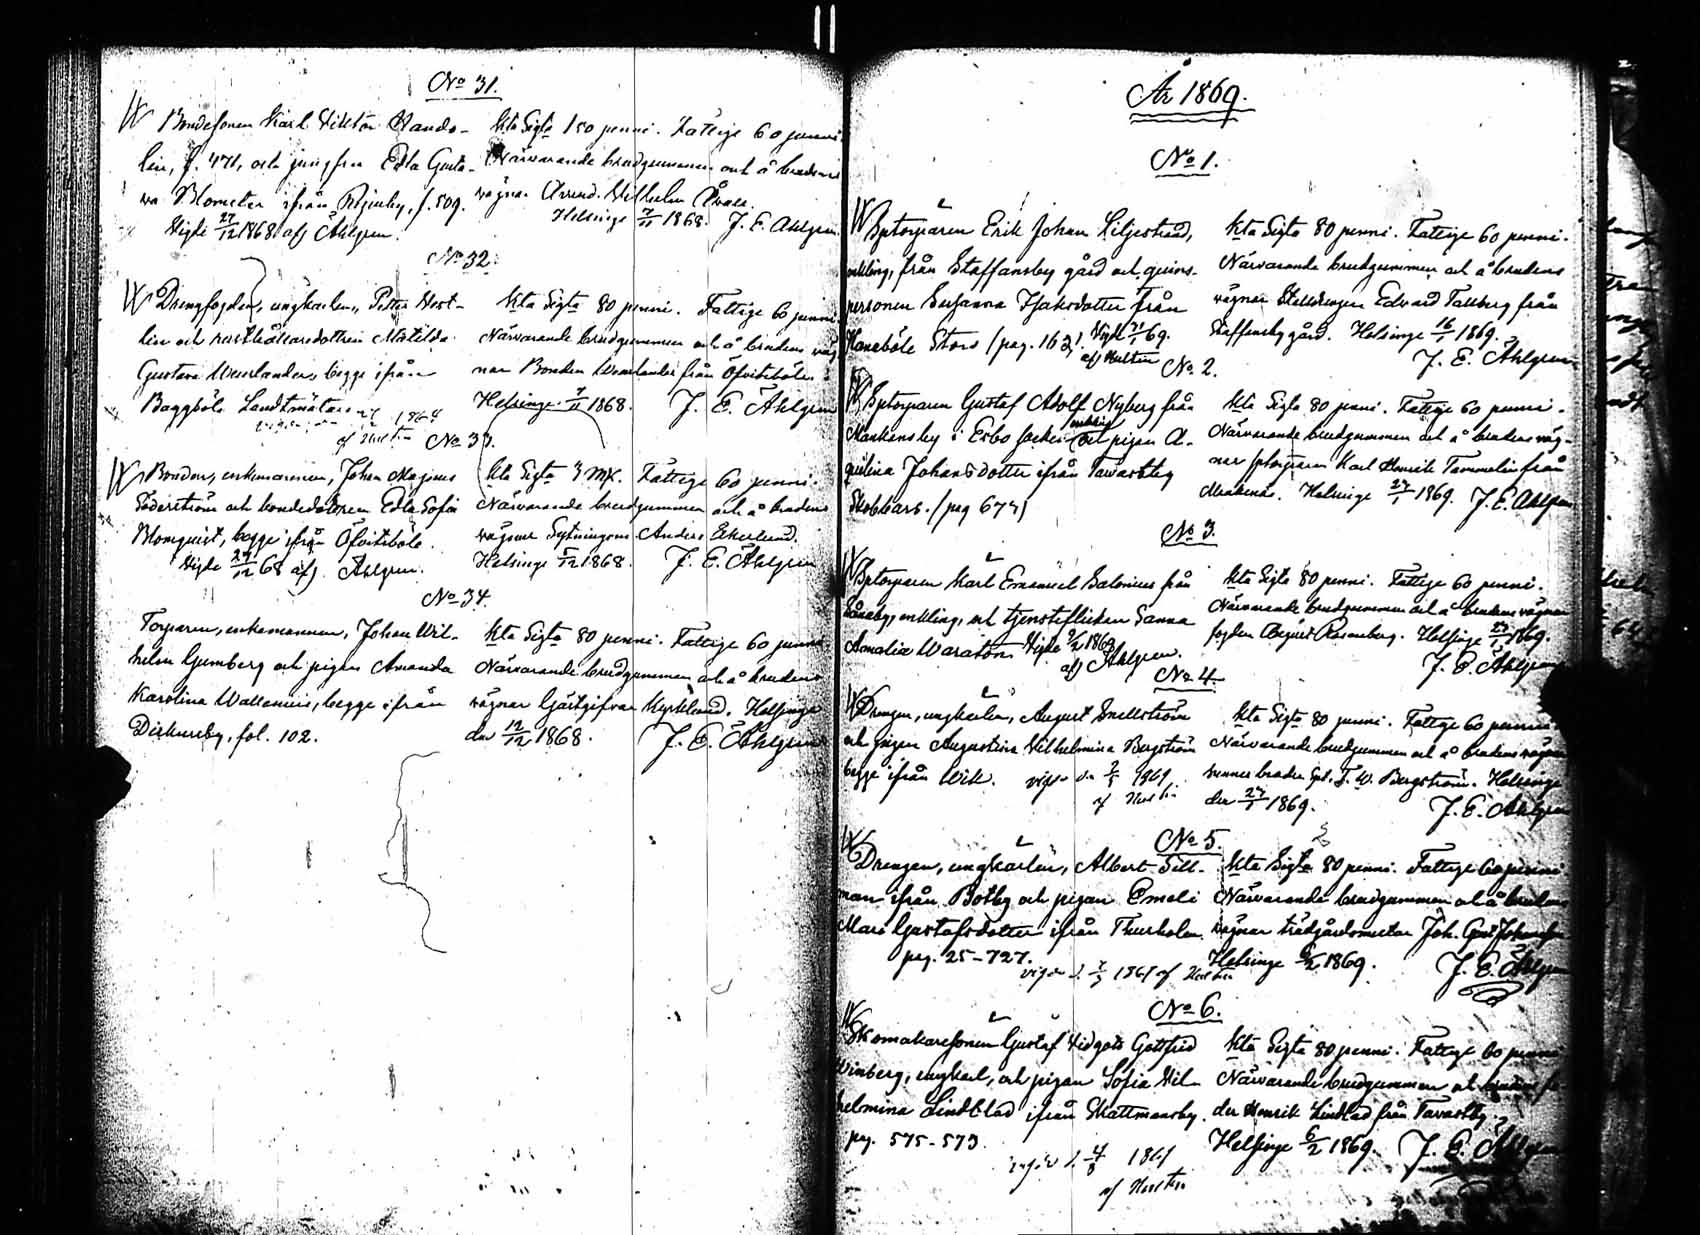 No 31.
Bondesonen Karl Viktor Rando-
lin, f. 471, och jungfru Edla Gusta-
va Blomster ifrån Rijnby, f. 509.
Vigde 27/12 1868 af Åhlgren.
Kta Sigta 150 penni. Fattige 60 penni.
Närvarande brudgummen och å brudens
vägnar Arrend. Wilhelm
Helsinge 7/11 1868. J. E. Åhlgren
No 32.
Drengfogden, ungkarlen, Petter West-
lin och rusthållaredottren Matilda
Gustava Weurlander, begge ifrån
Baggböle Landtmätare
af Hultin
Kta Sigta 80 penni. Fattige 60 penni.
Närvarande brudgummen och å brudens väg-
nar Bonden Weurlander från Öfvitsböle.
Helsinge 7/11 1868. J. E. Åhlgren
No 33.
Bonden, enkemannen, Johan Magnus
Söderström och bondedottren Edla Sofia
Blomquist, begge ifrån Öfvitsböle.
Vigde 27/12 68 af Åhlgren.
Kta Sigta 3 Mk. Fattige 60 penni.
Närvarande brudgummen och å brudens
vägnar Sytningsm. Anders Ekerlund.
Helsinge 5/12 1868. J. E. Åhlgren
No 34.
Torparen, enkemannen, Johan Wil-
helm Gumberg och pigan Amanda
Karolina Wallenius, begge ifrån
Dickursby, fol. 102.
Kta Sigta 80 penni. Fattige 60 penni.
Närvarande brudgummen och å brudens
vägnar Gästgifvar Kyrklund. Helsinge
den 12/12 1868. J. E. Åhlgren
År 1869.
No 1.
Sptorparen Erik Johan Liljestrand,
enkling, från Staffansby gård och quins-
personen Susanna Isaksdotter från
Hanaböle Stors (pag. 162). Vigde 21/ 69.
af Hultin
Kta Sigta 80 penni. Fattige 60 penni.
Närvarande brudgummen och å brudens
vägnar Stalldrengen Edvard Tallberg från
Staffansby gård. Helsinge 16/1 1869.
J. E. Åhlgren
No 2.
Sptorparen Gustaf Adolf Nyberg från
enkling
Mankansby i Esbo socken och pigan A-
quilina Johansdotter ifrån Tavastby
Skobbars. (pag 677)
Kta Sigta 80 penni. Fattige 60 penni.
Närvarande brudgummen och å brudens väg-
nar sptorparen Karl Henrik Tammelin från
Helsinge 27/1 1869. J. E. Åhlgren
No 3.
Sptorparen Karl Emanuel Salenius från
enkling, och tjensteflickan Sanna
Amalia Waratön Vigde 9/2 1869
af Åhlgren.
Kta Sigta 80 penni. Fattige 60 penni.
Närvarande brudgummen och å brudens vägnar
fogden August Rosenberg. Helsinge 27/1 1869.
J. E. Åhlgren
No 4.
Drengen, ungkarlen, August Snellström
och pigan Augustina Vilhelmina Bergström
begge ifrån Wik. vigde den 7/5 1869
af Hultin
Kta Sigta 80 penni. Fattige 60 penni.
Närvarande brudgummen och å brudens vägnar
hennes broder T. W. Bergström. Helsinge
den 27/1 1869. J. E. Åhlgren
No 5.
Drengen, ungkarlen, Albert Sill-
man ifrån Botby och pigan Emeli
Mari Gustafsdotter ifrån Thurholm.
pag. 25-727.
vigde d. 7/3 1869 af Hultin
Kta Sigta 80 penni. Fattige 60 penni
Närvarande brudgummen och å brudens
vägnar trädgårdsmestar Joh. Gust Johansson
Helsinge 6/2 1869. J. E. Åhlgren
No 6.
Skomakaresonen Gustaf Vidgots Gottfrid
Winberg, ungkarl, och pigan Sofia Wil-
helmina Lindblad ifrån Skattmansby.
pag. 575-573.
vigde d. 4/ 1869
af Hultin
Kta Sigta 80 penni. Fattige 60 penni
Närvarande brudgummen och brudens fa-
der Henrik Lindblad från Tavastby.
Helsinge 6/2 1869. J. E. Åhlgren